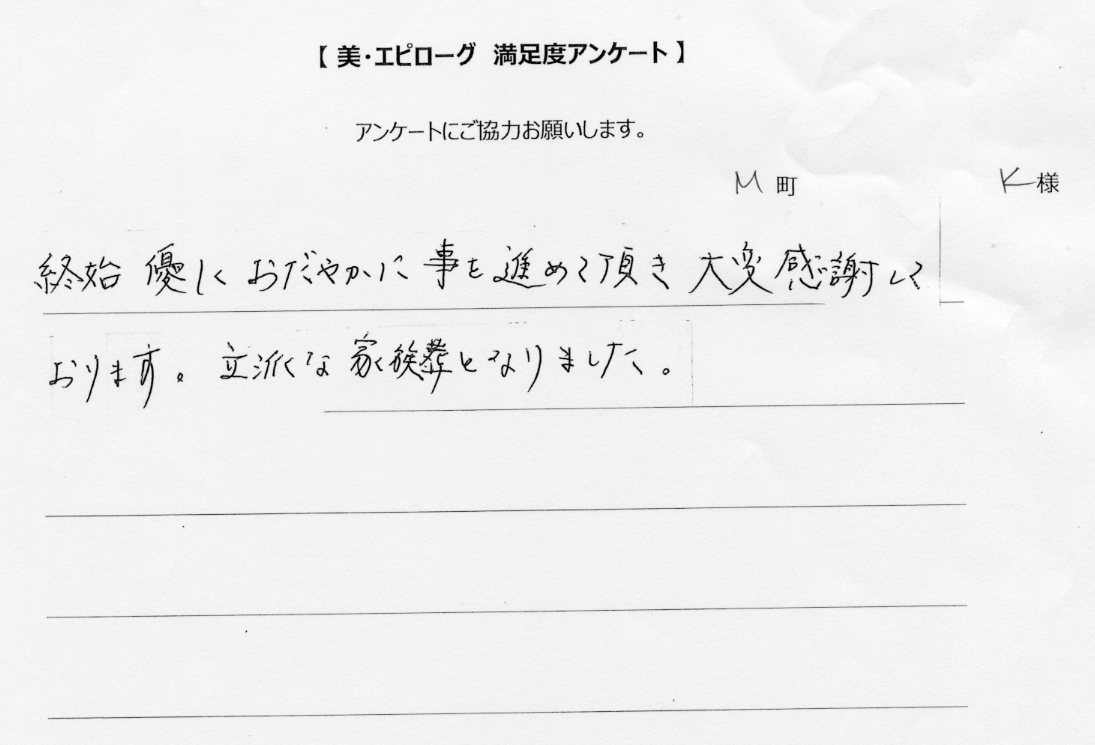 【 美・エピローグ 満足度アンケート 】
アンケートにご協力お願いします。
M 町 K 様
終始 優しくおだやかに 事を進めて頂き 大変感謝して
おります。立派な家族葬となりました。